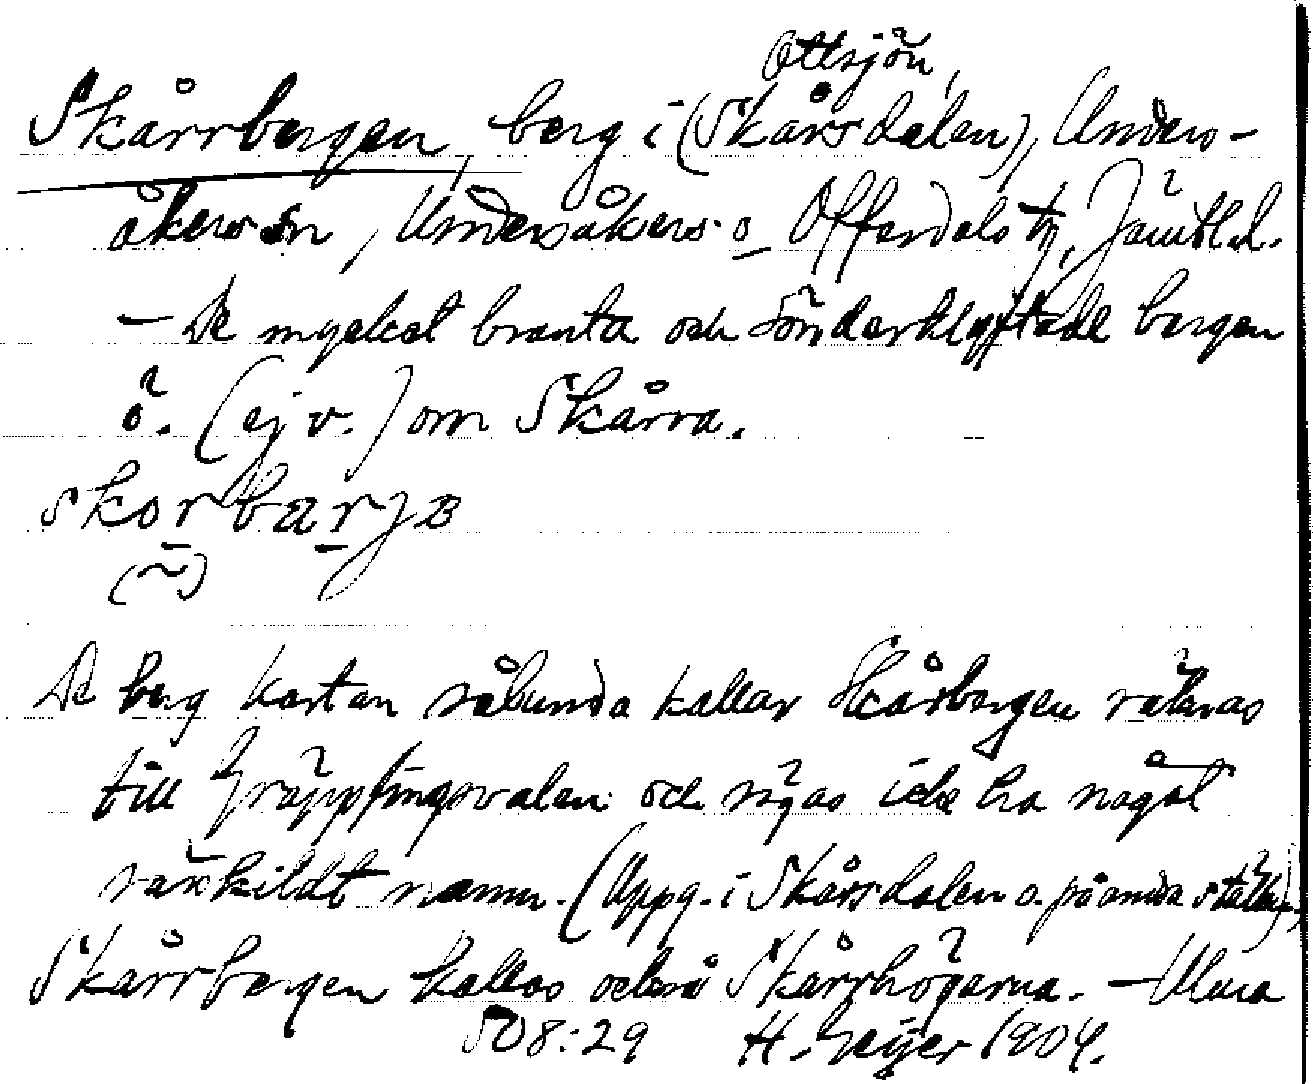 Ottsjön,
Skårrbergen, berg i (Skårsdalen), Unders-
åkers sn, Undersåkers o Offerdals tg, Jämtl.l.
- De mycket branta och sönderklyftade bergen
ö. (ej v.) om Skårva.
skorbarjɐ
(~)
De berg kartan sålunda kallar Skårbergen räknas
till Gräpplingsvalen och sägas icke ha något
särskildt namn. (Uppg. i Skårsdalen o. på andra ställen)
Skårrbergen kallas också Skårrhögarna. -
508:29 H. Geijer 1904.